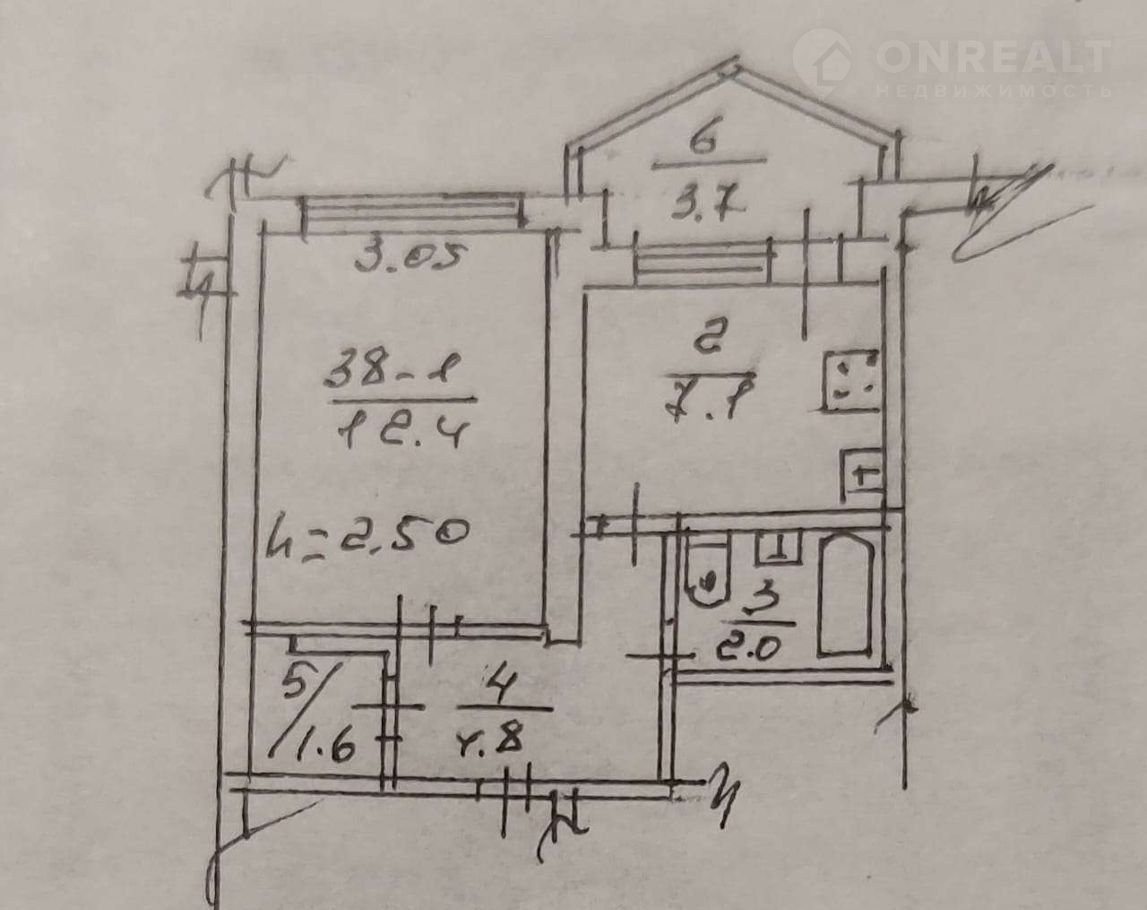 ONREALT
НЕДВИЖИМОСТЬ
6
3.7
3.05
2
7.1
38-1
12.4
h=2.50
3
2.0
5/1.6
4
4.8